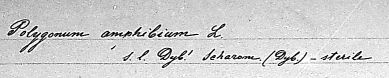 Polygonum amphibium L.
s. l. Dyb! Scharom (Dyb) - sterile